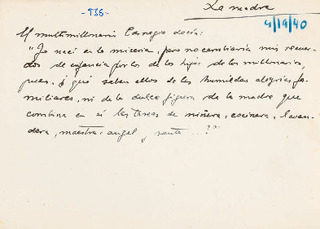 -TIS-
La madre
4/19/40
El multimillonario Carnegie decía:
"Yo nací en la miseria, pero no cambiaría mis recuer-
dos de infancia por los de los hijos de los millonarios,
pues, ¿qué saben ellos de las humildes alegrías fa-
miliares, ni de la dulce figura de la madre que
combina en sí las tareas de niñera, cocinera, lavan-
dera, maestra, angel y santa ...?"